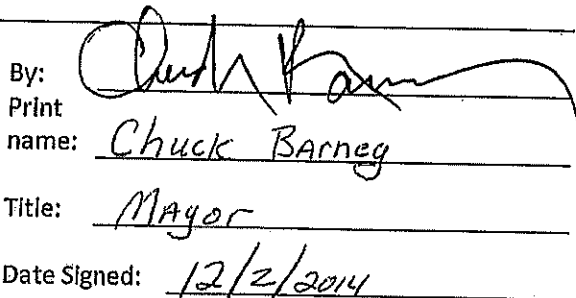 By: Chuck Bar
Print
name: Chuck BArneg
Title: MAyor
Date Signed: 12/2/2014